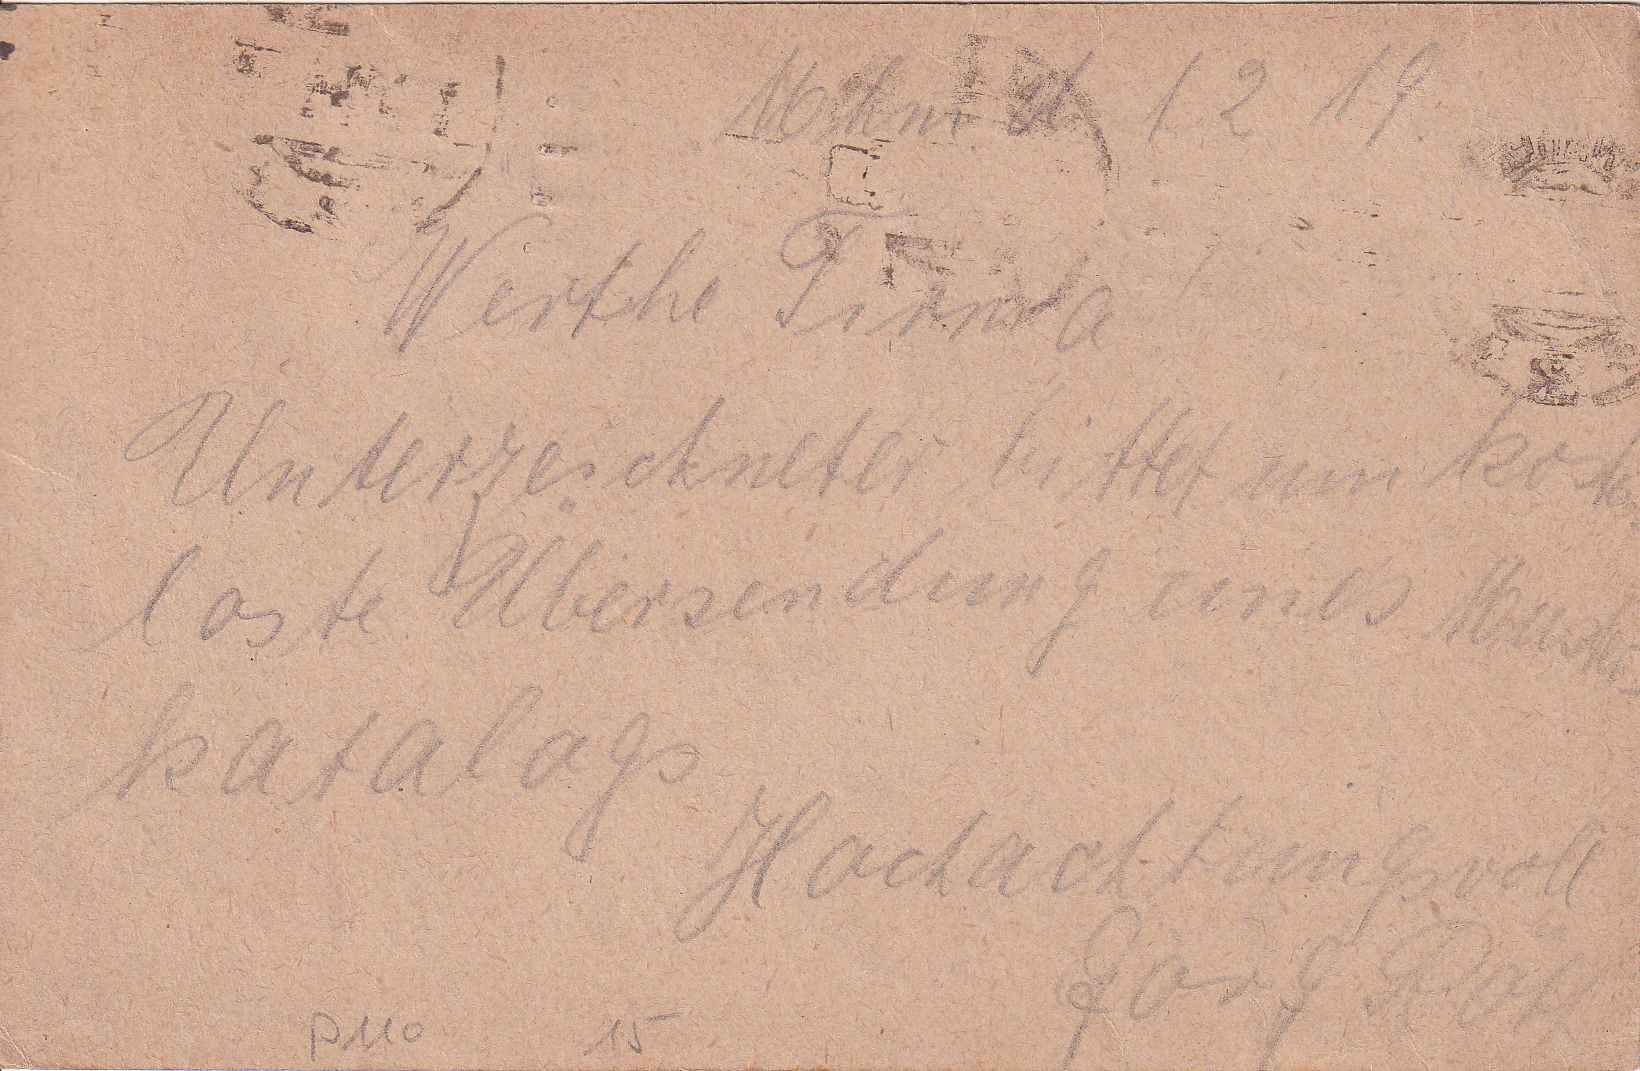 1 2 19.
Werthe Firma
Unterzeichneter bittet um kosten
loste Übersendung eines Muster
katalogs
Hochachtungsvoll
Görg
P110 15